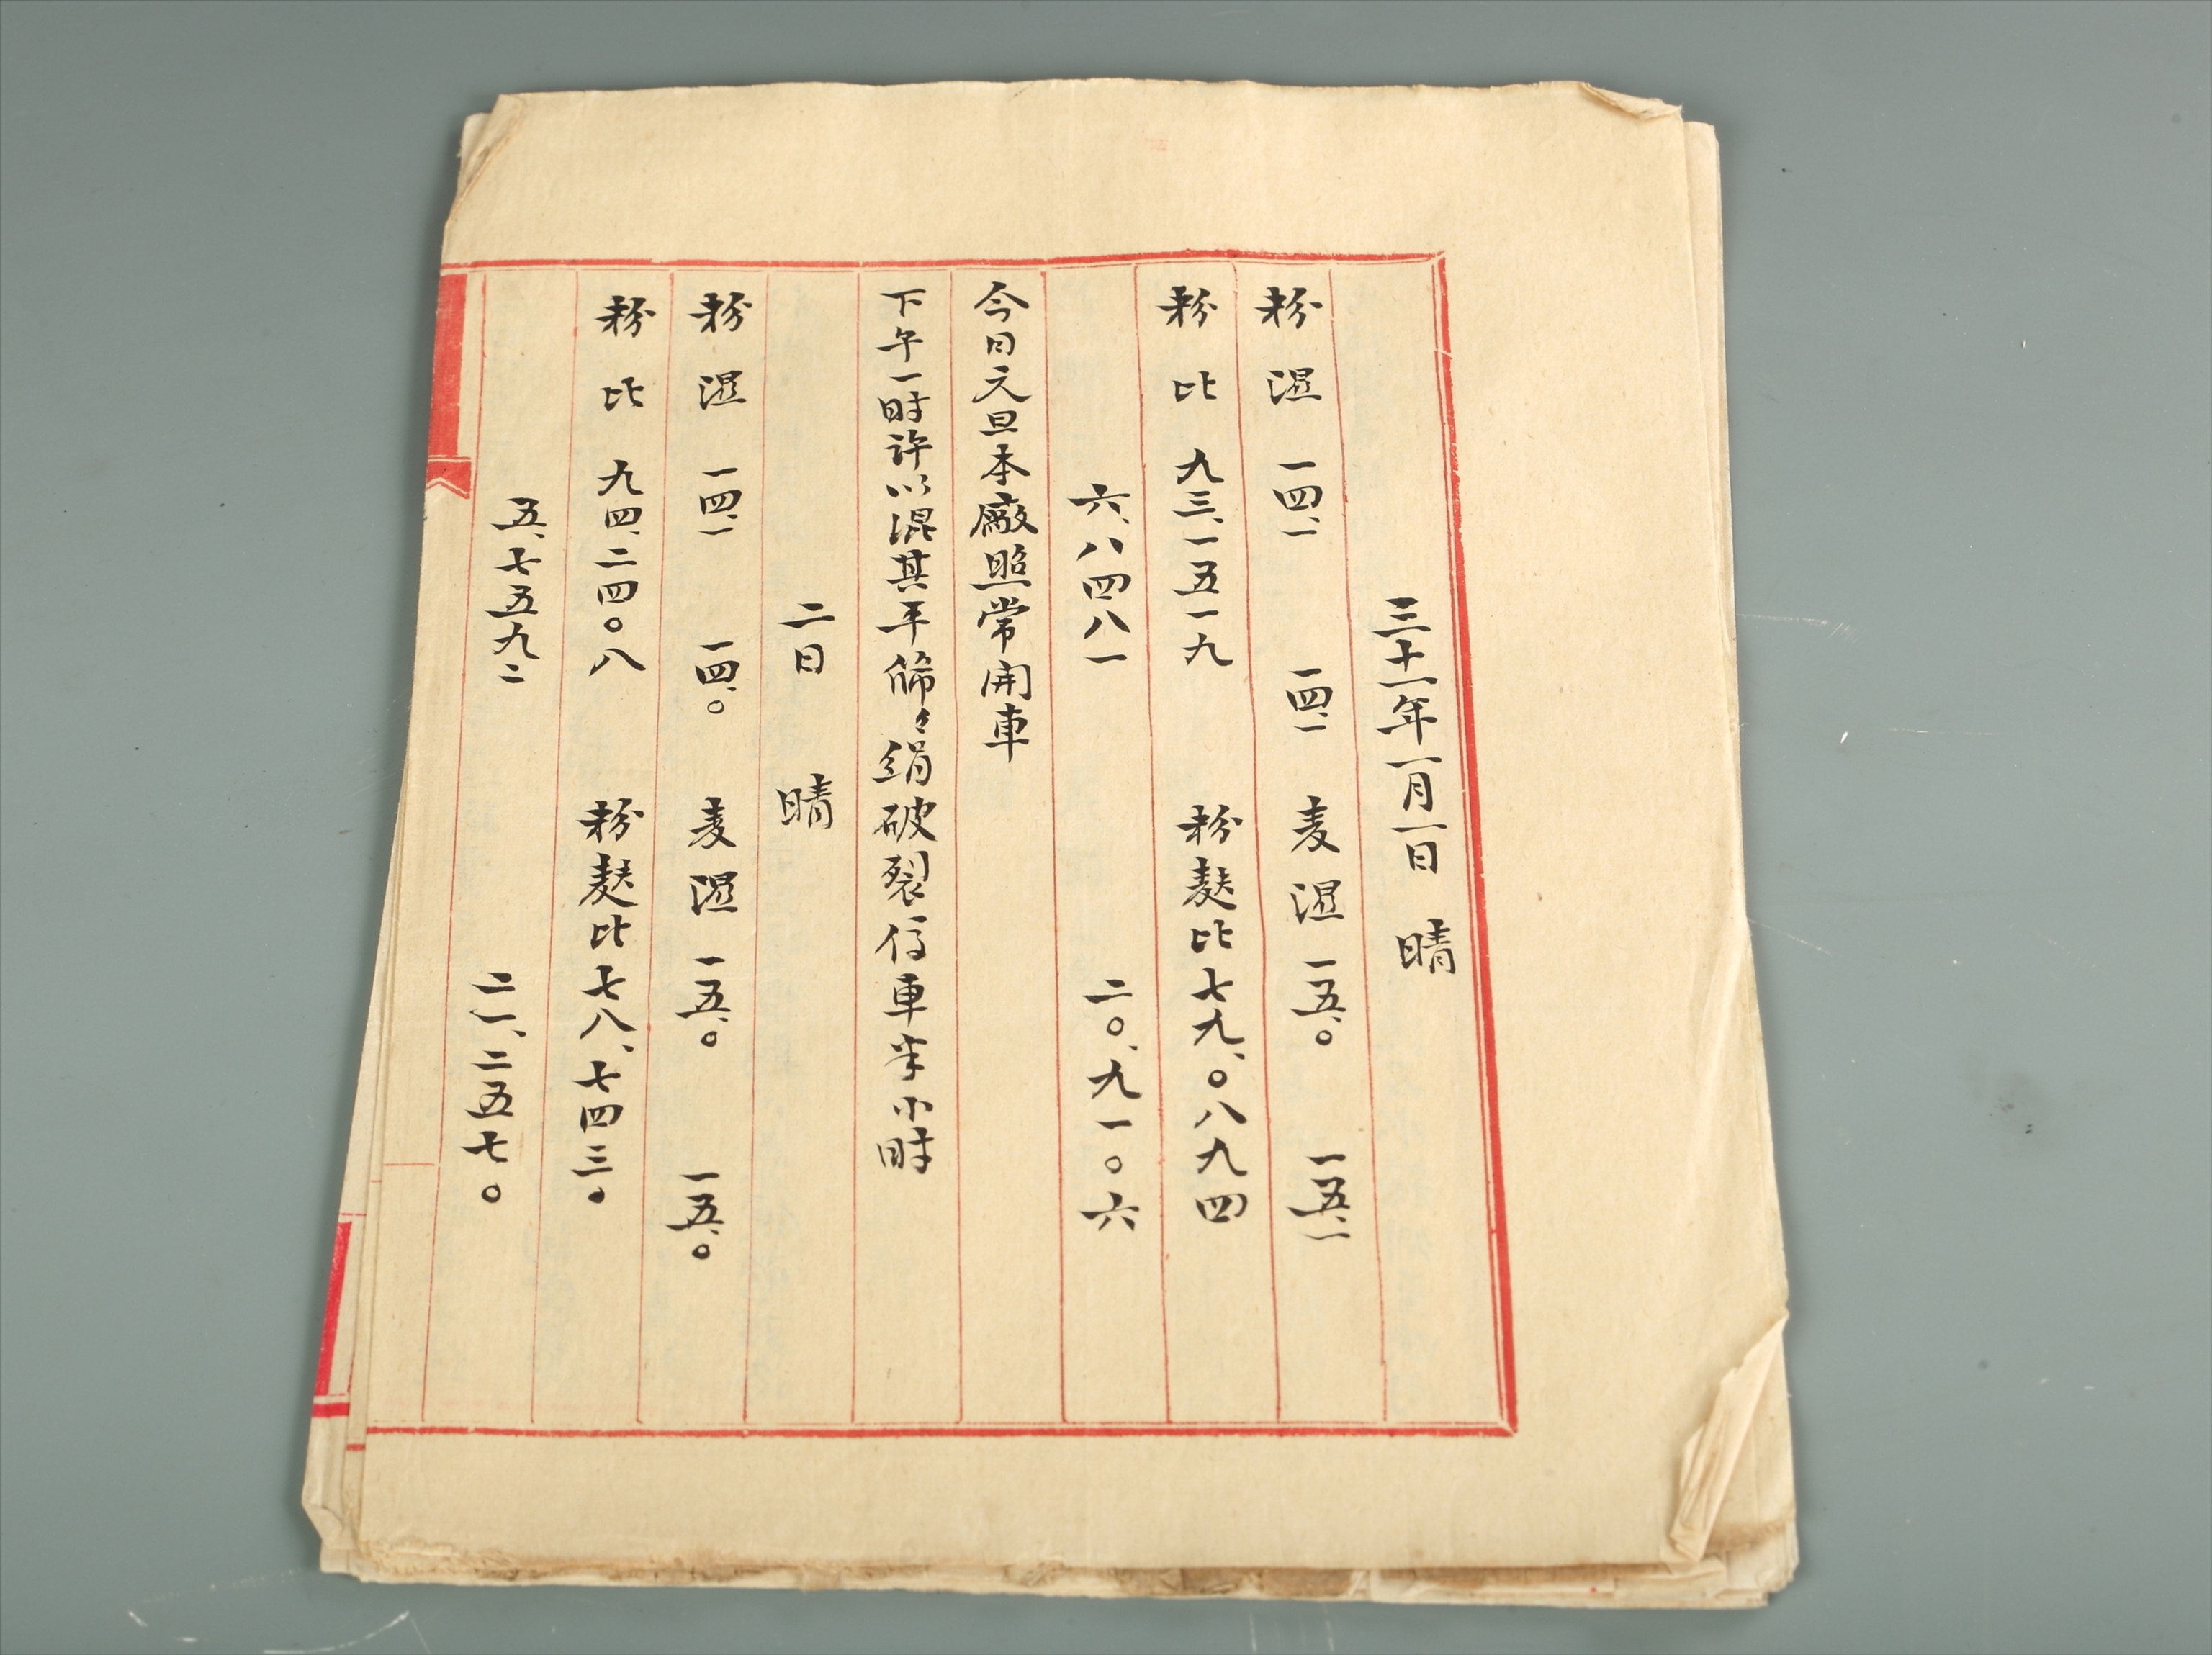 三十一年一月一日 晴
粉湿 一四、一 一四、一 麦湿 一五、〇 一五、一
粉比 九三、一五一九 粉麸比 七九、〇八九四
六、八四八一 二〇、九一〇六
今日元旦本廠照常開車
下午一时许以混其平篩々绢破裂停車半小时
二日 晴
粉湿 一四、一 一四、〇 麦湿 一五、〇 一五、〇
粉比 九四、二四〇八 粉麸比 七八、七四三〇
五、七五九二 二一、二五七〇